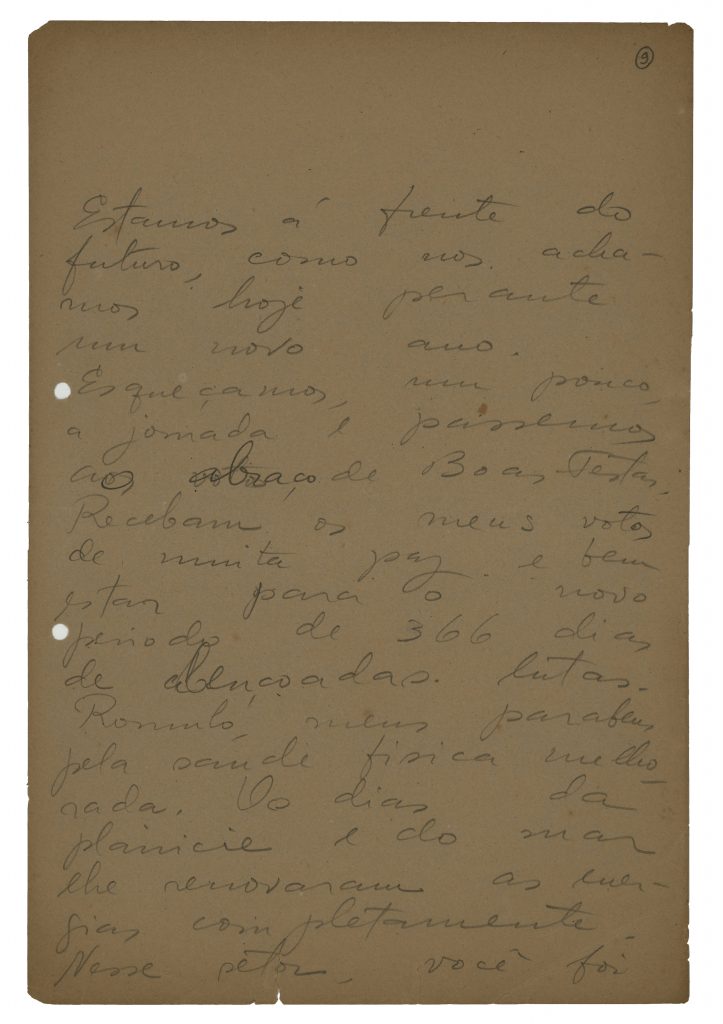 9
Estamos á frente do
futuro, como nos acha-
mos hoje perante
um novo ano.
Esqueçamos, um pouco,
a jornada e passemos
ao abraço de Boas-Festas.
Recebam os meus votos
de muita paz e bem
estar para o novo
periodo de 366 dias
de abençoadas lutas.
Romulo, meus parabens
pela saude fisica melho-
rada. Os dias da
planicie e do mar
lhe renovaram as ener-
gias completamente.
Nesse setor, você foi